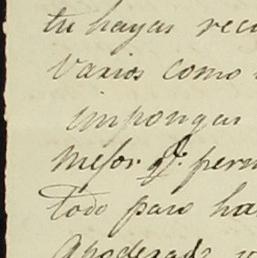 tu hayas reci
varios como
impongas
mejor
todo paro ha
Apoderado